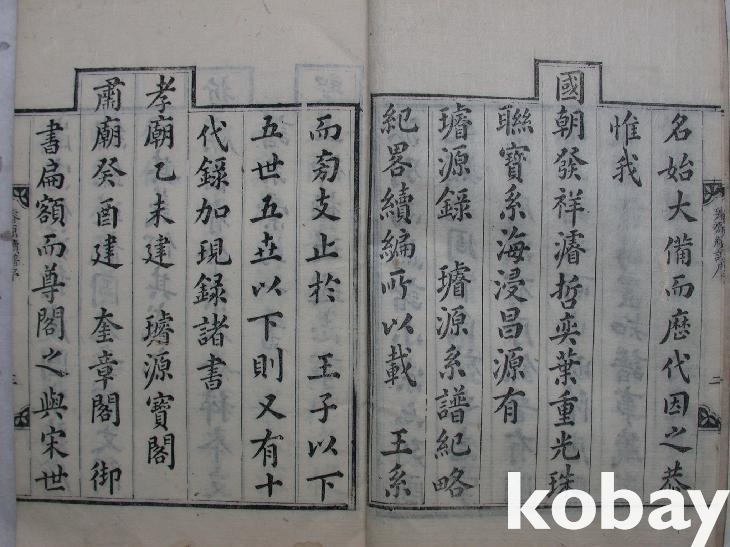 名始大備而歷代因之恭
惟我
國朝發祥濬哲奕葉重光珠
聯寶系海浸昌源有
璿源錄 璿源系譜紀略
紀畧續編所以載 王系
而旁支止於 王子以下
五世五世以下則又有十
代錄加現錄諸書
孝廟乙未建 璿源寶閣
肅廟癸酉建 奎章閣 御
書扁額而尊閣之與宋世
二
kobay